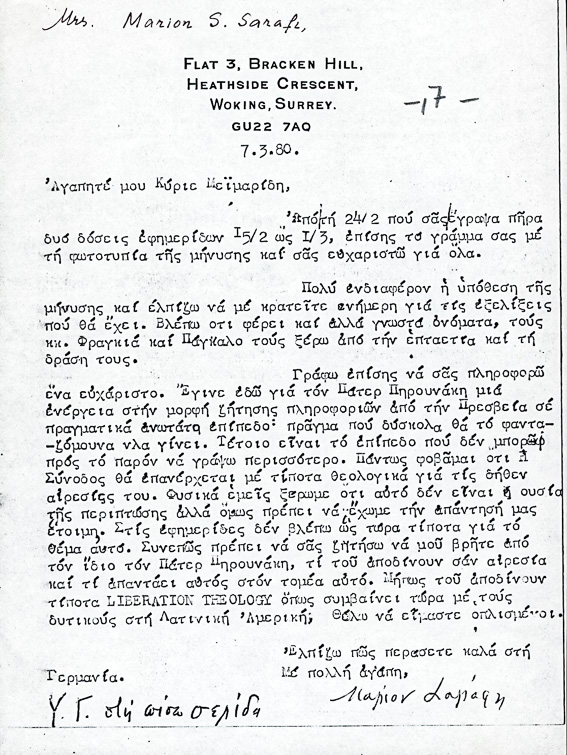 Mrs. Marion S. Sarafi,
FLAT 3, BRACKEN HILL,
HEATHSIDE CRESCENT,
WOKING, SURREY.
GU22 7AQ
-17-
7.3.80.
Ἀγαπητέ μου Κύριε Μεϊμαρίδη,
Ἀπό τή 24/2 πού σᾶς ἔγραψα πῆρα
δυό δόσεις ἐφημερίδων I5/2 ὥς I/3, ἐπίσης το γράμμα σας μέ
τή φωτοτυπία τῆς μήνυσης καί σᾶς εὐχαριστῶ γιά ὅλα.
Πολύ ἐνδιαφέρον ἡ ὑπόθεση τῆς
μήνυσης καί ἐλπίζω νά μέ κρατεῖτε ἐνήμερη γιά τίς ἐξελίξεις
πού θά ἔχει. Βλέπω οτι φέρει καί ἀλλά γνωστά ὀνόματα, τούς
κκ. Φραγκιά καί Πάγκαλο τούς ξέρω ἀπό τήν ἑπταετία καί τή
δράση τους.
Γράφω ἐπίσης νά σᾶς πληροφορῶ
ἕνα εὐχάριστο. Ἔγινε ἐδῶ γιά τόν Πάτερ Πηρουνάκη μιά
ἐνέργεια στήν μορφή ζήτησης πληροφοριῶν ἀπό τήν Πρεσβεία σέ
πραγματικά ἀνωτάτη ἐπίπεδο· πρᾶγμα πού δύσκολα θά τό φαντα-
-ζόμουνα νλα γίνει. Τέτοιο εἶναι τό ἐπίπεδο πού δέν μπορῶ
πρός τό παρόν νά γράψω περισσότερο. Πάντως φοβᾶμαι οτι Ἡ
Σύνοδος θά ἐπανέρχεται μέ τίποτα θεολογικά γιά τίς δῆθεν
αἱρεσίες του. Φυσικά ἐμεῖς ξερωμε οτι αὐτό δέν εἶναι ἡ οὐσία
τῆς περιπτώσης ἀλλά ὅμως πρέπει νά ἔχωμε τήν ἀπάντησή μας
ἕτοιμη. Στίς ἐφημερίδες δέν βλέπω ὥς τώρα τίποτα γιά τό
θέμα αὐτό. Συνεπῶς πρέπει νά σᾶς ζητήσω νά μοῦ βρῆτε ἀπό
τόν ἴδιο τόν Πάτερ Πηρουνάκη, τί τοῦ ἀποδίνουν σάν αἱρεσία
καί τί ἀπαντάει αὐτός στόν τομέα αὐτό. Μήπως τοῦ ἀποδίνουν
τίποτα LIBERATION THEOLOGY ὅπως συμβαίνει τώρα μέ τούς
δυτικούς στή Λατινική Ἀμερική; Θέλω νά εἴμαστε ὁπλισμένοι.
Ἐλπίζω πῶς περάσετε καλά στή
Γερμανία.
Μέ πολλή ἀγάπη,
Μαρίον Σαράφη
Υ.Γ. στή πίσω σελίδα